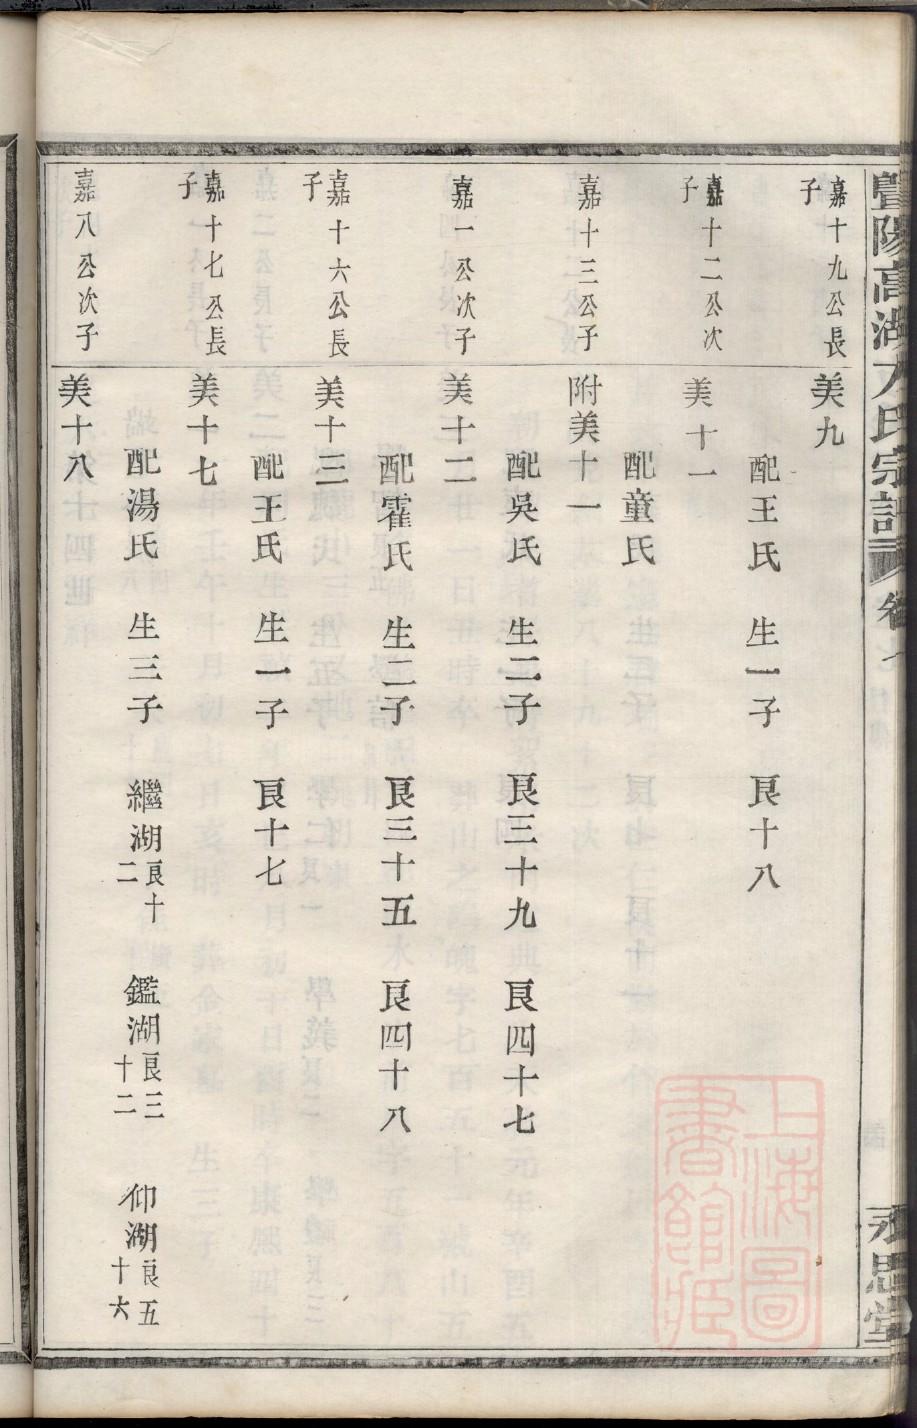 暨陽高湖方氏宗譜 卷
永思堂
嘉十九公長子
美九
配王氏 生一子 良十八
嘉十二公次子
美十一
配童氏
嘉十三公子
附美十一
配吳氏 生二子 良三十九 良四十七
嘉一公次子
美十二
配霍氏 生二子 良三十五 良四十八
嘉十六公長子
美十三
配王氏 生一子 良十七
嘉十七公長子
美十七
配湯氏 生三子 繼湖良十二 鑑湖良三十二 仰湖良五十六
嘉八公次子
美十八
上海圖書館藏